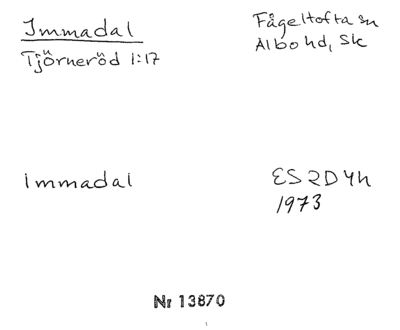 Immadal
Tjörneröd 1:17
Fågeltofta sn
Albo hd, Sk
Immadal
ES 2D4h
1973
Nr 13870